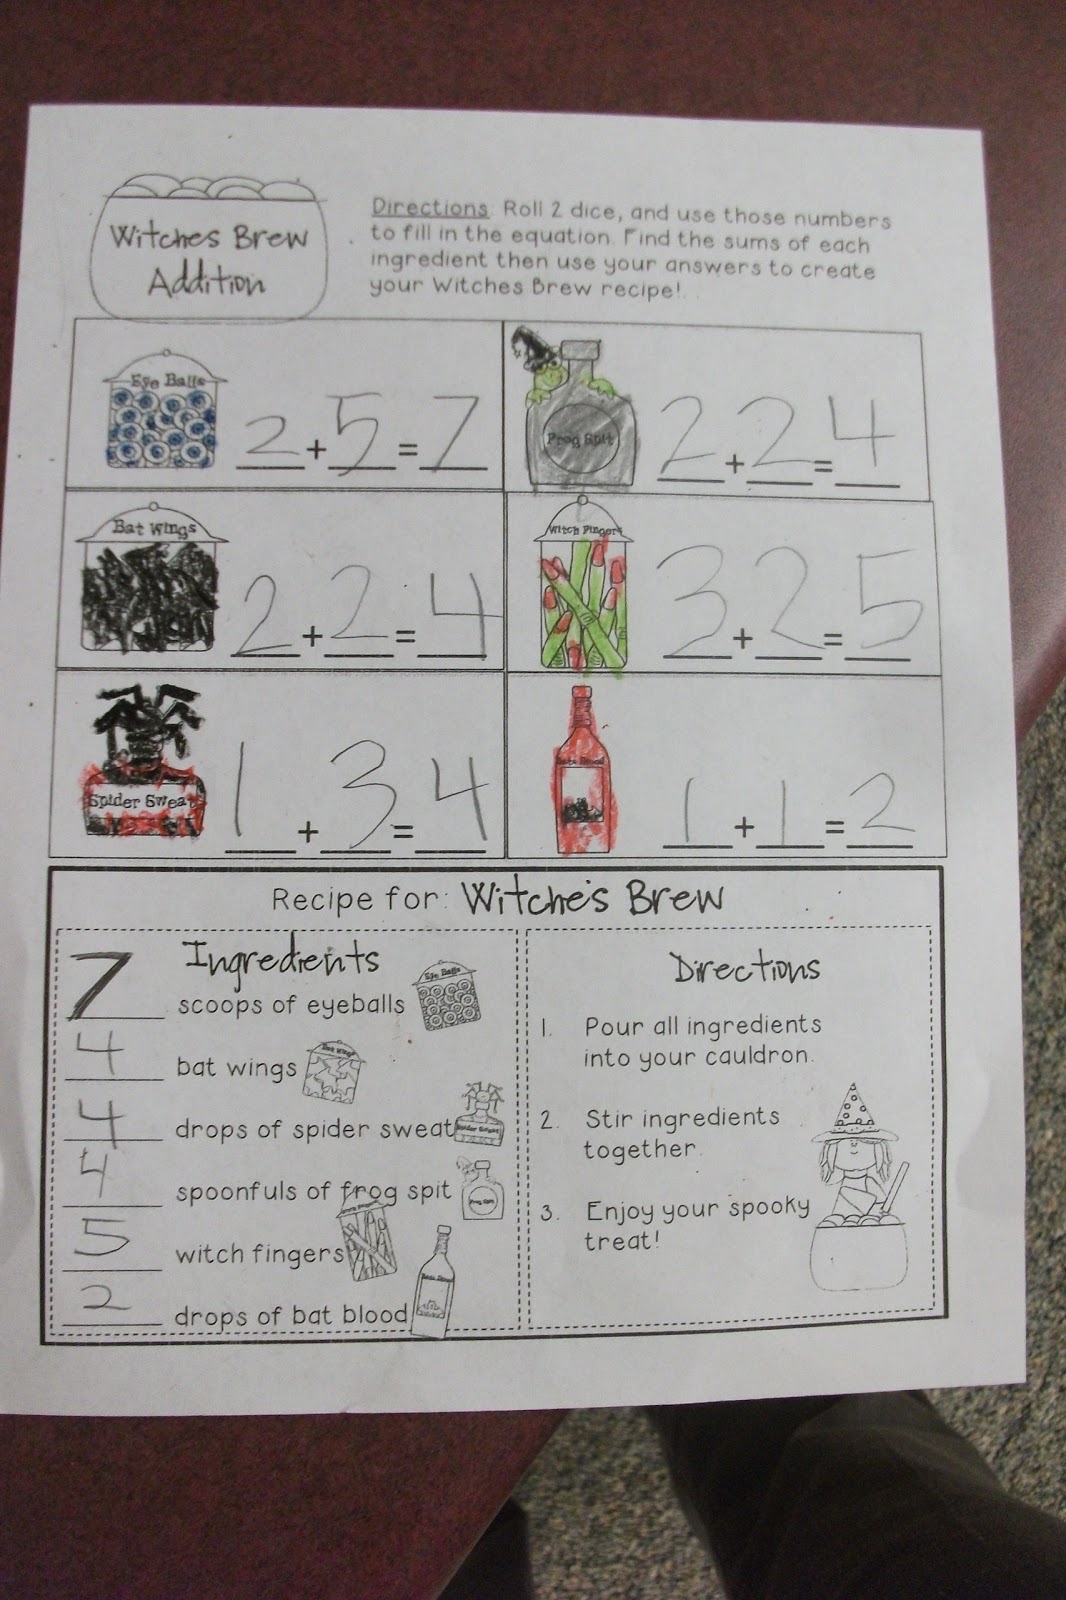 Witches Brew
Addition
Directions: Roll 2 dice, and use those numbers
to fill in the equation. Find the sums of each
ingredient then use your answers to create
your Witches Brew recipe!
Eye Balls
2 + 5 = 7
Frog Spit
2 + 2 = 4
Bat Wings
2 + 2 = 4
Witch Fingers
3 + 2 = 5
Spider Sweat
1 + 3 = 4
Bats Blood
1 + 1 = 2
Recipe for: Witche's Brew
Ingredients
7 scoops of eyeballs
Eye Balls
4 bat wings
Bat Wings
4 drops of spider sweat
Spider Sweat
4 spoonfuls of frog spit
Frog Spit
5 witch fingers
2 drops of bat blood
Bats Blood
Directions
1. Pour all ingredients
into your cauldron.
2. Stir ingredients
together.
3. Enjoy your spooky
treat!